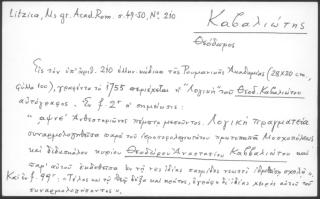 Litzica, Ms gr. Acad. Rom. σ. 49-50, Νο. 210
Καβαλιώτης
Θεόδωρος
Εἰς τὸν ὑπ' ἀριθ. 210 ἑλλην. κώδικα τῆς Ρουμανικῆς Ἀκαδημίας (28×20 cm,
φύλλα 100), γραφέντα τῷ 1755 περιέχεται ἡ "Λογικὴ" τοῦ Θεοδ. Καβαλιώτου
αὐτόγραφος. Ἐν f. 2α ἡ σημείωσις:
"αψνε' Ἀνθεστηριῶνος πέμπτῃ μεσοῦντος. Λογικὴ πραγματεία
συναρμολογηθεῖσα παρὰ τοῦ ἱερομονάχου πρωτοπαπᾶ Μοσχοπόλεως
καὶ διδασκάλου κυρίου Θεοδώρου Ἀναστασίου Καβαλιώτου καὶ
παρ' αὐτοῦ ἐκδοθεῖσα ἐν τῇ τῆς ἰδίας πατρίδος σχολῇ".
Καὶ ἐν f. 99: "Τέλος καὶ τῷ Θεῷ δόξα καὶ κράτος, ἐγράφη δι' ἰδίας χειρὸς αὐτοῦ τοῦ
συναρμολογήσαντος".